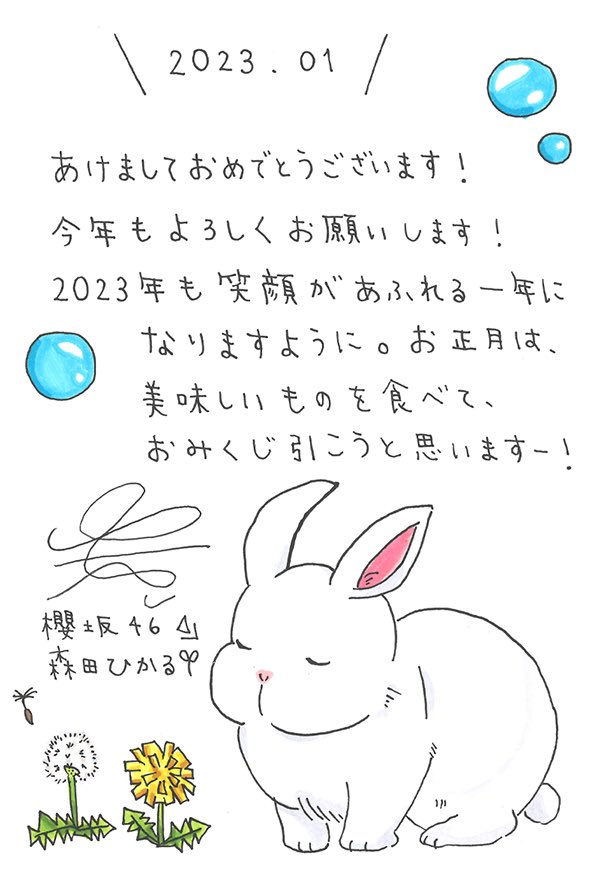 2023.01
あけましておめでとうございます！
今年もよろしくお願いします！
2023年も笑顔があふれる一年に
なりますように。お正月は、
美味しいものを食べて、
おみくじ引こうと思いますー！
櫻坂46
森田ひかる♡